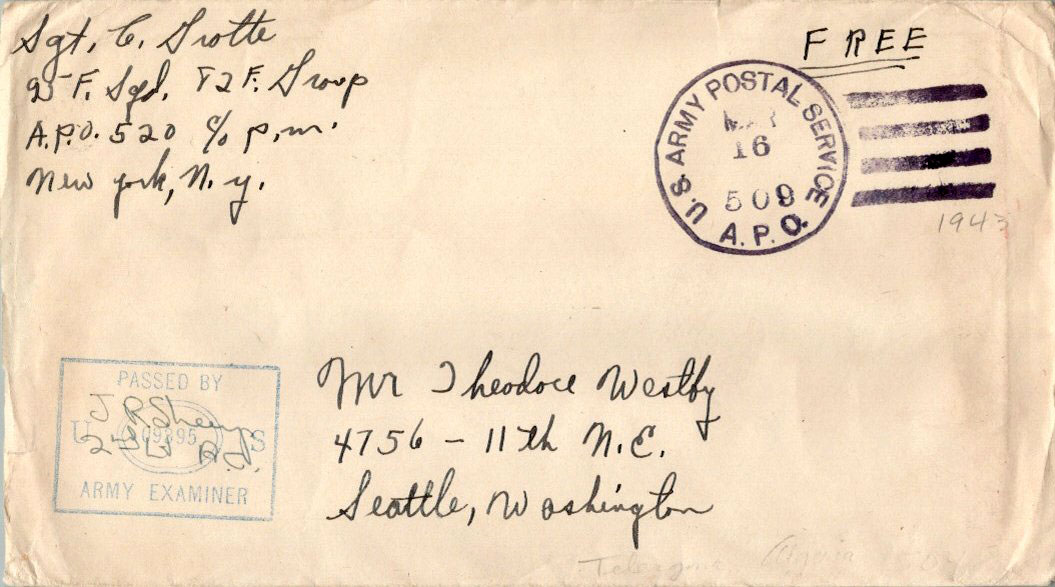 Sgt. C. Trotte
95 F. Sqd. 82 F. Group
A.P.O. 520 c/o P.M.
New York, N.Y.
FREE
U.S. ARMY POSTAL SERVICE
MAR
16
509
A.P.O.
1943
PASSED BY
U S
09395
ARMY EXAMINER
Mr Theodore Westby
4756 - 11th N.E.
Seattle, Washington